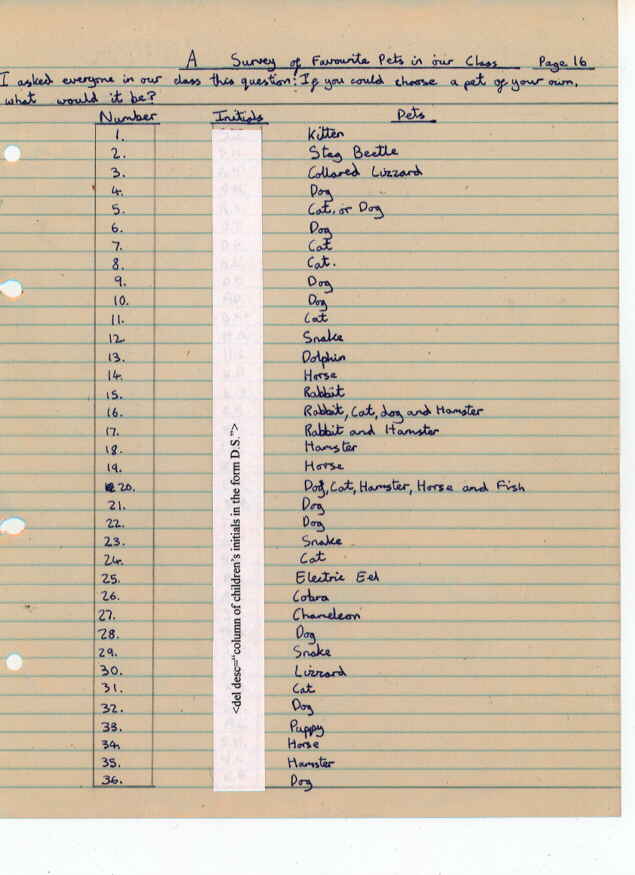 A Survey of Favourite Pets in our Class Page 16
I asked everyone in our class this question: If you could choose a pet of your own,
what would it be?
Number Initials Pets
1. Kitten
2. Stag Beetle
3. Collared Lizzard
4. Dog
5. Cat, or Dog
6. Dog
7. Cat
8. Cat.
9. Dog
10. Dog
11. Cat
12. Snake
13. Dolphin
14. Horse
15. Rabbit
16. Rabbit, Cat, dog and Hamster
17. Rabbit and Hamster
18. Hamster
19. Horse
20. Dog, Cat, Hamster, Horse and Fish
21. Dog
22. Dog
23. Snake
24. Cat
25. Electric Eel
26. Cobra
27. Chameleon
28. Dog
29. Snake
30. Lizzard
31. Cat
32. Dog
33. Puppy
34. Horse
35. Hamster
36. Dog
<del desc="column of children's initials in the form D.S.">